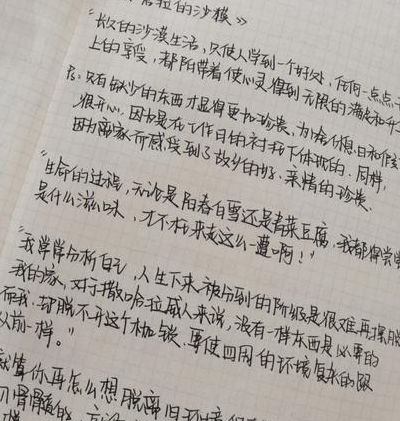 拉的沙漠》
"长久的沙漠生活,只使人学到一个好处,任何一点点
上的享受,都附带着使心灵得到无限的满足和升
只有缺少的东西才显得更加珍贵,为啥休息日和假
很开心,因为是在工作日的衬托下体现的,同样,
因为离家而感受到了故乡的好,亲情的珍贵.
"生命的过程,无论是阳春白雪还是青菜豆腐,我都得尝尝
是什么滋味,才不枉来走这么一遭啊!"
"我常常分析自己,人生下来被分到的阶级是很难再摆脱
我的家,对于撒哈拉威人来说,没有一样东西是必要的
而我,却脱不开这个枷锁,要使四周的环境复杂的跟
以前一样。"
就算你再怎么想脱离旧环境
骨髓的